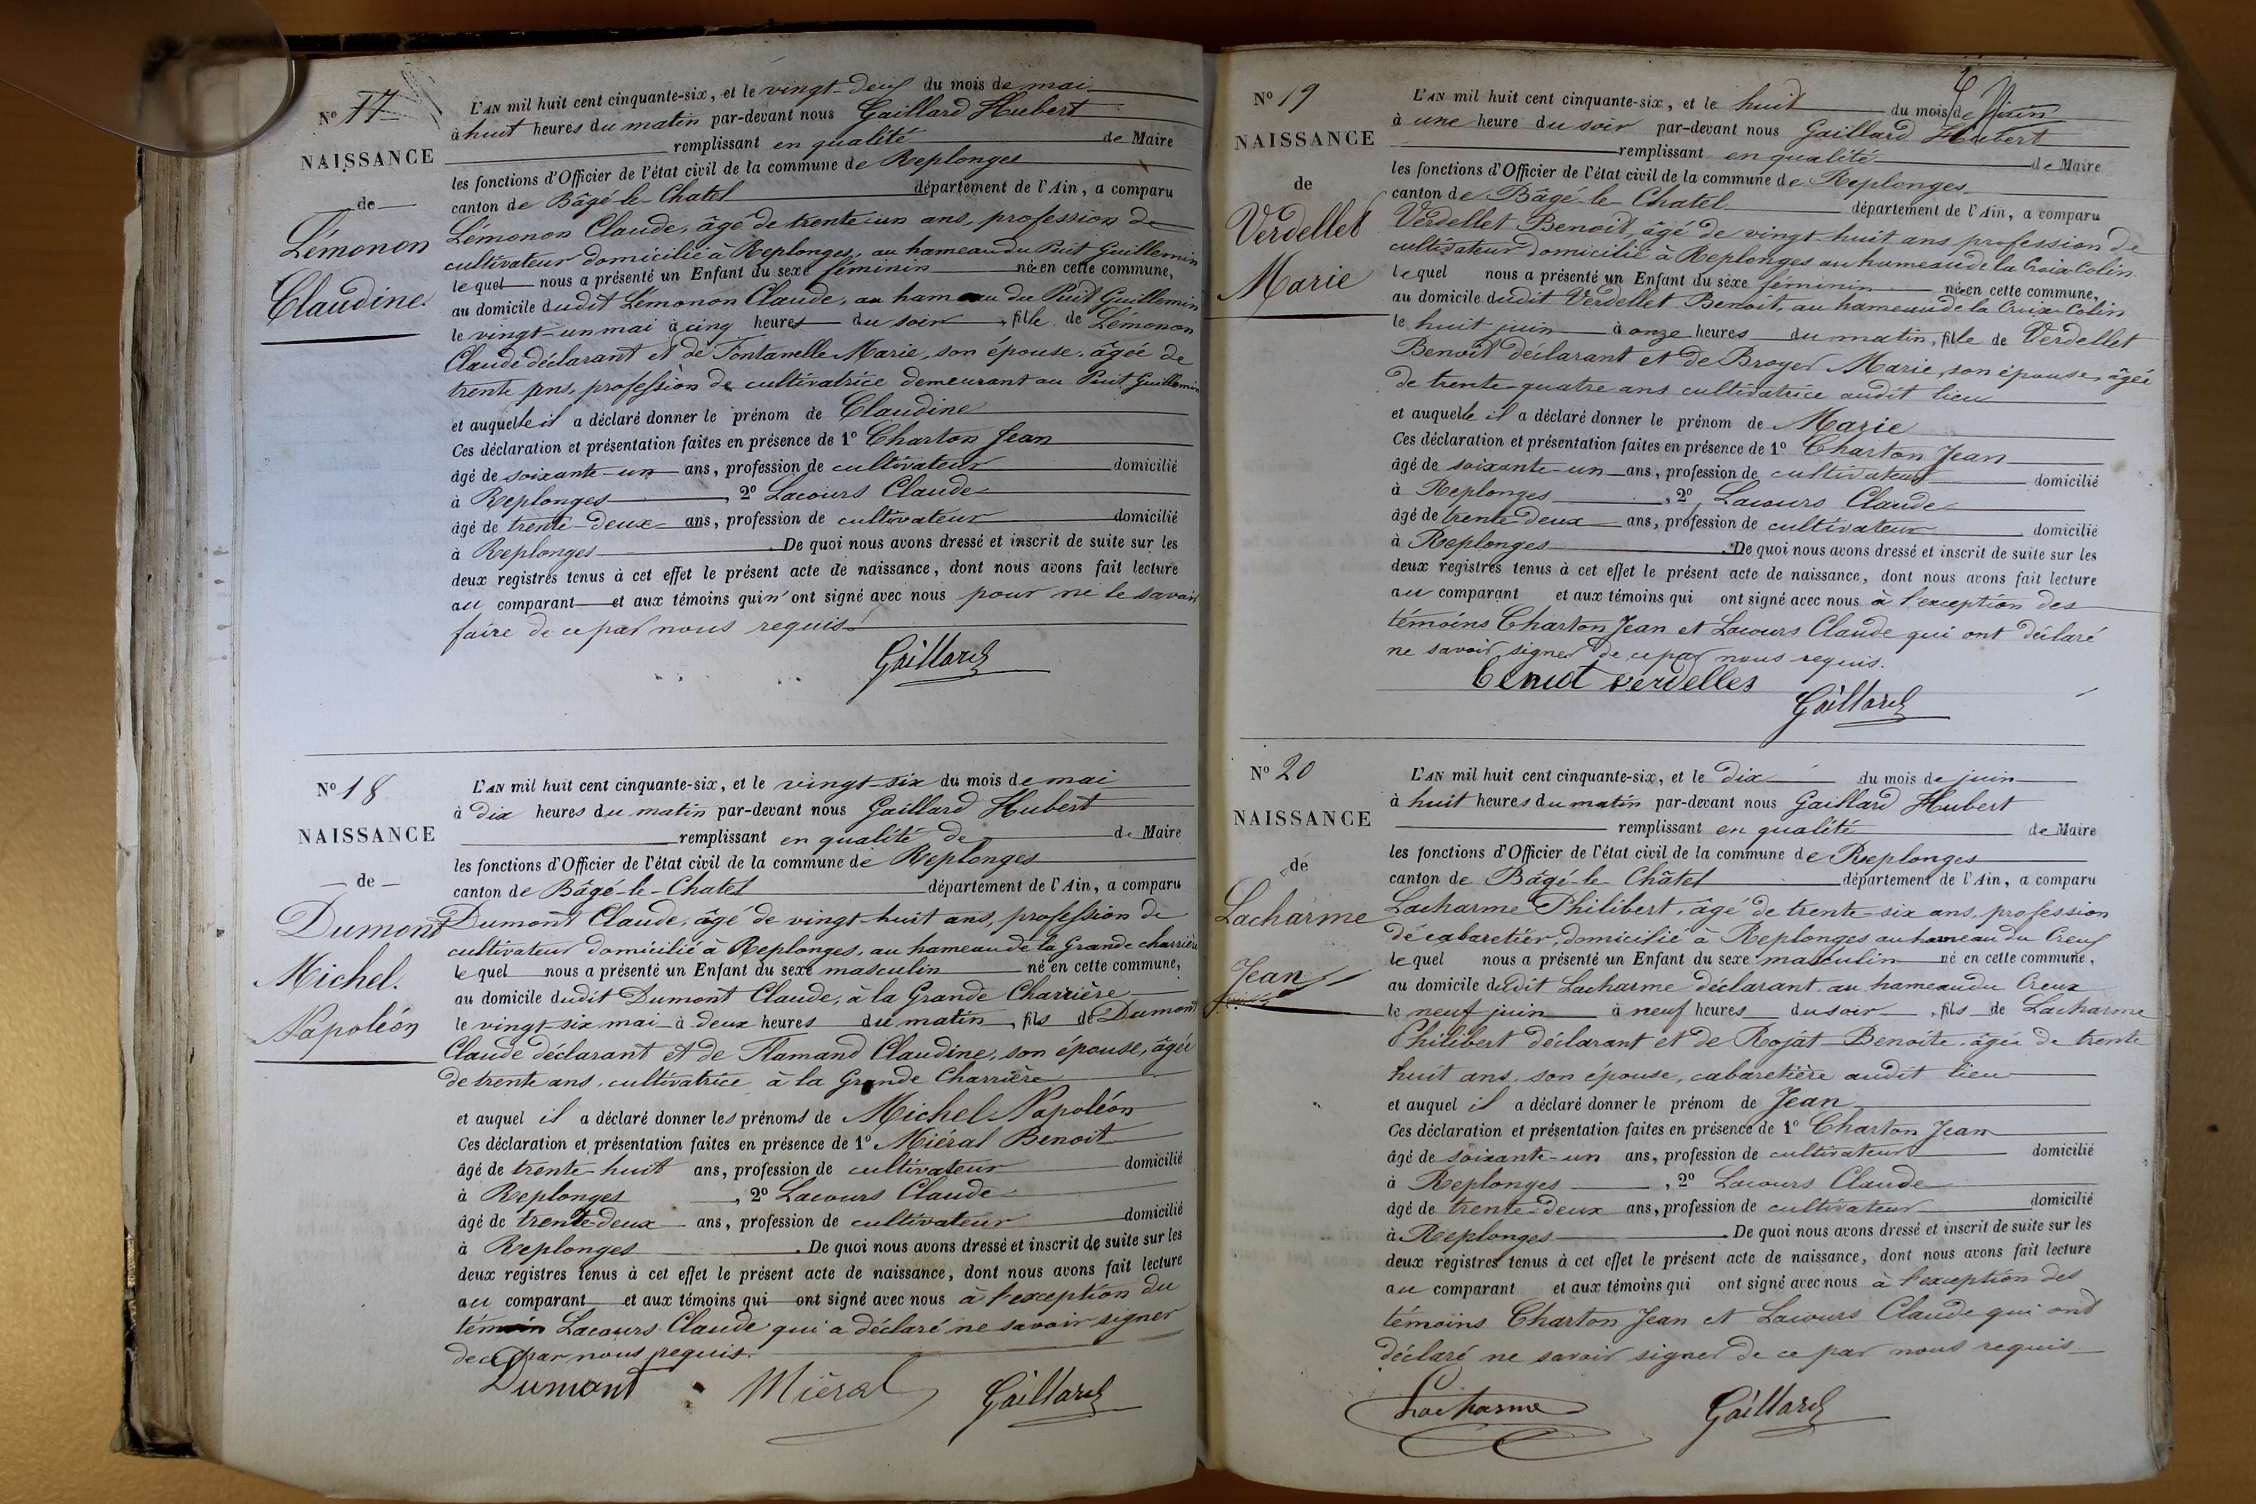 N° 17
NAISSANCE
de
Lémonon
Claudine.
L'AN mil huit cent cinquante-six, et le vingt-deux du mois de mai
à huit heures du matin par-devant nous Gaillard Hubert
remplissant en qualité de Maire
les fonctions d'Officier de l'état civil de la commune de Replonges
canton de Bâgé-le-Chatel département de l'Ain, a comparu
Lémonon Claude, âgé de trente-un ans, profession de
cultivateur domicilié à Replonges, au hameau du Puit Guillemin
lequel nous a présenté un Enfant du sexe féminin née en cette commune,
au domicile dudit Lémonon Claude, au hameau du Puit Guillemin
le vingt-un mai à cinq heures du soir, fille de Lémonon
Claude déclarant et de Fontanelle Marie, son épouse, âgée de
trente ans, profession de cultivatrice demeurant au Puit Guillemin
et auquelle il a déclaré donner le prénom de Claudine
Ces déclaration et présentation faites en présence de 1° Charton Jean
âgé de soixante-un ans, profession de cultivateur domicilié
à Replonges, 2° Lacours Claude
âgé de trente-deux ans, profession de cultivateur domicilié
à Replonges. De quoi nous avons dressé et inscrit de suite sur les
deux registres tenus à cet effet le présent acte de naissance, dont nous avons fait lecture
au comparant et aux témoins qui n'ont signé avec nous pour ne le savoir
faire de ce par nous requis
Gaillard
N° 18
NAISSANCE
de
Dumont
Michel.
Napoléon
L'AN mil huit cent cinquante-six, et le vingt-six du mois de mai
à dix heures du matin par-devant nous Gaillard Hubert
remplissant en qualité de de Maire
les fonctions d'Officier de l'état civil de la commune de Replonges
canton de Bâgé-le-Chatel département de l'Ain, a comparu
Dumont Claude, âgé de vingt-huit ans, profession de
cultivateur domicilié à Replonges, au hameau de la Grande charrière
lequel nous a présenté un Enfant du sexe masculin né en cette commune,
au domicile dudit Dumont Claude, à la Grande Charrière
le vingt-six mai à deux heures du matin, fils de Dumont
Claude déclarant et de Flamand Claudine, son épouse, âgée
de trente ans, cultivatrice à la Grande Charrière
et auquel il a déclaré donner les prénoms de Michel Napoléon
Ces déclaration et présentation faites en présence de 1° Miéral Benoit
âgé de trente-huit ans, profession de cultivateur domicilié
à Replonges, 2° Lacours Claude
âgé de trente-deux ans, profession de cultivateur domicilié
à Replonges. De quoi nous avons dressé et inscrit de suite sur les
deux registres tenus à cet effet le présent acte de naissance, dont nous avons fait lecture
au comparant et aux témoins qui ont signé avec nous à l'exception du
témoin Lacours Claude qui a déclaré ne savoir signer
de ce par nous requis.
Dumont Miéral Gaillard
N° 19
NAISSANCE
de
Verdellet
Marie
L'AN mil huit cent cinquante-six, et le huit du mois de Juin
à une heure du soir par-devant nous Gaillard Hubert
remplissant en qualité de Maire
les fonctions d'Officier de l'état civil de la commune de Replonges
canton de Bâgé-le-Chatel département de l'Ain, a comparu
Verdellet Benoit, âgé de vingt-huit ans profession de
cultivateur domicilié à Replonges au hameau de la Croix Colin
lequel nous a présenté un Enfant du sexe féminin née en cette commune,
au domicile dudit Verdellet Benoit, au hameau de la Croix Colin
le huit juin à onze heures du matin, fille de Verdellet
Benoit déclarant et de Broyer Marie, son épouse, âgée
de trente-quatre ans cultivatrice audit lieu
et auquelle il a déclaré donner le prénom de Marie
Ces déclaration et présentation faites en présence de 1° Charton Jean
âgé de soixante-un ans, profession de cultivateur domicilié
à Replonges, 2° Lacours Claude
âgé de trente deux ans, profession de cultivateur domicilié
à Replonges. De quoi nous avons dressé et inscrit de suite sur les
deux registres tenus à cet effet le présent acte de naissance, dont nous avons fait lecture
au comparant et aux témoins qui ont signé avec nous à l'exception des
témoins Charton Jean et Lacours Claude qui ont déclaré
ne savoir signer de ce par nous requis.
benoit verdelles
Gaillard
N° 20
NAISSANCE
de
Lacharme
Jean
L'AN mil huit cent cinquante-six, et le dix du mois de juin
à huit heures du matin par-devant nous Gaillard Hubert
remplissant en qualité de Maire
les fonctions d'Officier de l'état civil de la commune de Replonges
canton de Bâgé-le-Châtel département de l'Ain, a comparu
Lacharme Philibert, âgé de trente-six ans, profession
de cabaretier, domicilié à Replonges au hameau du Creux
lequel nous a présenté un Enfant du sexe masculin né en cette commune,
au domicile dudit Lacharme déclarant au hameau du Creux
le neuf juin à neuf heures du soir, fils de Lacharme
Philibert déclarant et de Rojat Benoite âgée de trente
huit ans, son épouse, cabaretière audit lieu
et auquel il a déclaré donner le prénom de Jean
Ces déclaration et présentation faites en présence de 1° Charton Jean
âgé de soixante-un ans, profession de cultivateur domicilié
à Replonges, 2° Lacours Claude
âgé de trente-deux ans, profession de cultivateur domicilié
à Replonges. De quoi nous avons dressé et inscrit de suite sur les
deux registres tenus à cet effet le présent acte de naissance, dont nous avons fait lecture
au comparant et aux témoins qui ont signé avec nous à l'exception des
témoins Charton Jean et Lacours Claude qui ont
déclaré ne savoir signer de ce par nous requis
Lacharme Gaillard